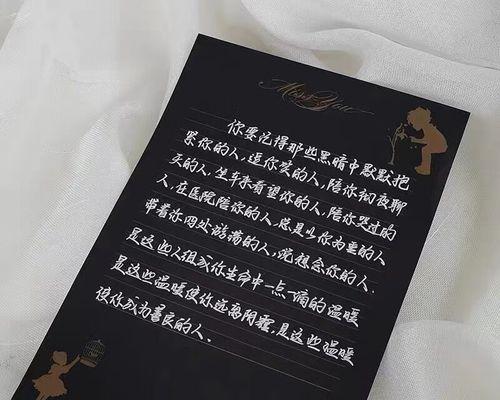 Miss You
你要记得那些黑暗中默默抱
紧你的人，逗你笑的人，陪你彻夜聊
天的人，坐车来看望你的人，陪你哭过的
人，在医院陪你的人，总是以你为重的人
带着你四处游荡的人，说想念你的人，
是这些人组成你生命中一点一滴的温暖
是这些温暖使你远离阴霾，是这些温暖
使你成为善良的人。